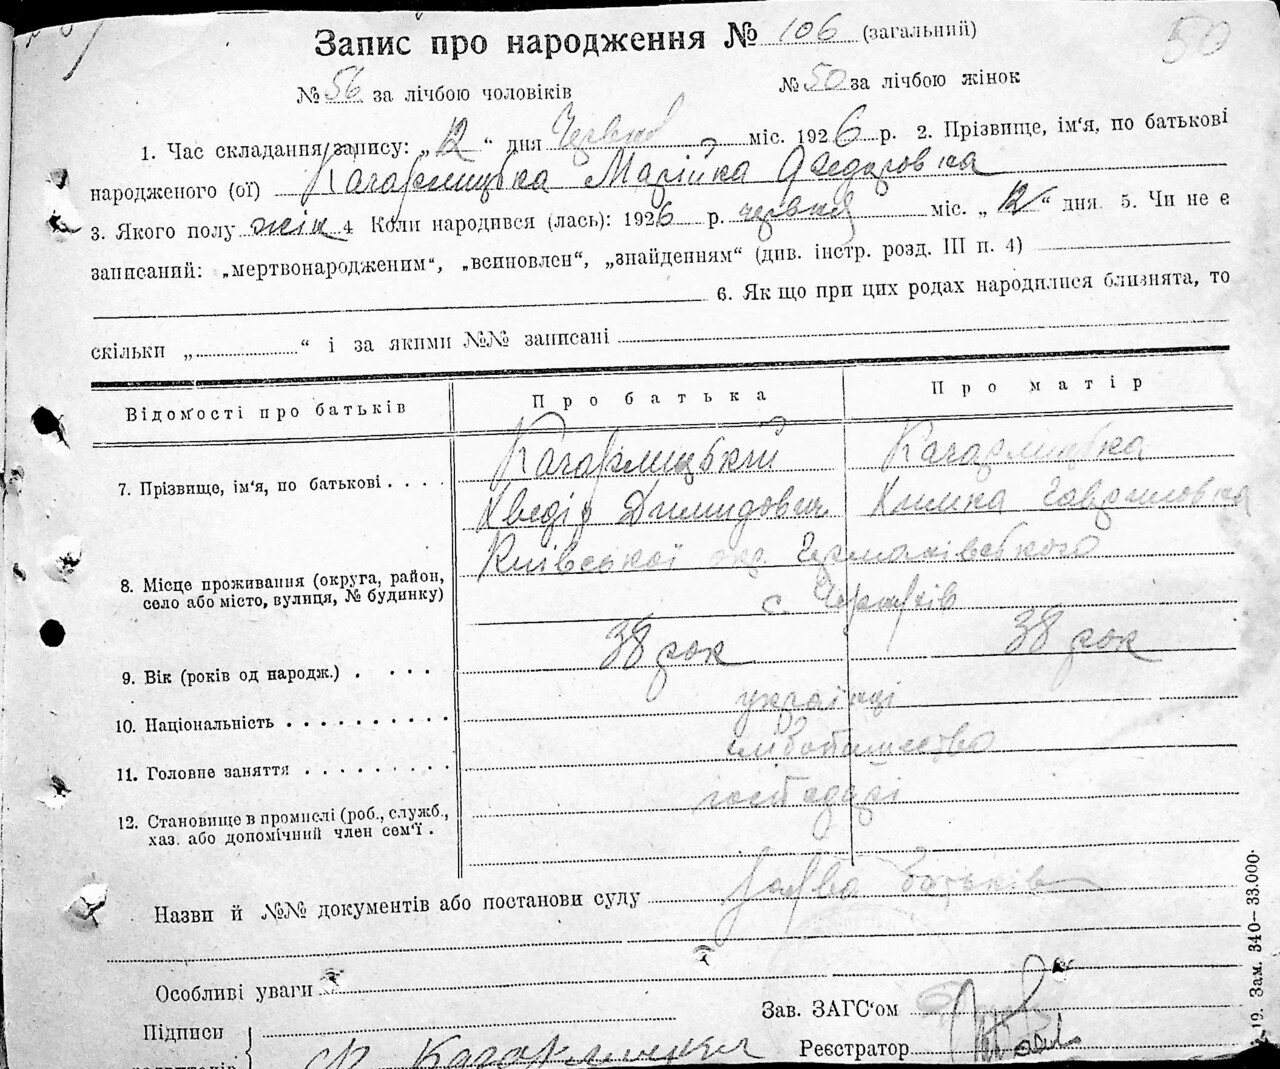 50
Запис про народження № 106 (загальний)
№ 56 за лічбою чоловіків № 50 за лічбою жінок
1. Час складання запису: „12“ дня Червня міс. 1926 р. 2. Прізвище, ім'я, по батькові
народженого (ої) Кагарлицька Марійка Хведоровна
3. Якого полу жін 4 Коли народився (лась): 1926 р. червня міс. „12“ дня. 5. Чи не є
записаний: „мертвонародженим“, „всиновлен“, „знайденням“ (див. інстр. розд. III п. 4)
6. Як що при цих родах народилися близнята, то
скільки „ “ і за якими №№ записані
Відомості про батьків Про батька Про матір
7. Прізвище, ім'я, по батькові . . . . Кагарлицький Кагарлицька
Хведір Димидович Химка Гавриловна
8. Місце проживання (округа, район, Київської окр
село або місто, вулиця, № будинку) с.
9. Вік (років од народж.) . . . . . 38 рок 38 рок
10. Національність . . . . . . . . . . українці
11. Головне заняття . . . . . . . . . хліборобство
12. Становище в промислі (роб., служб., господарі
хаз. або допомічний член сем'ї .
Назви й №№ документів або постанови суду Заява батьків
Особливі уваги
Підписи Зав. ЗАГС'ом
Реєстратор
19. Зам. 340—33.000.